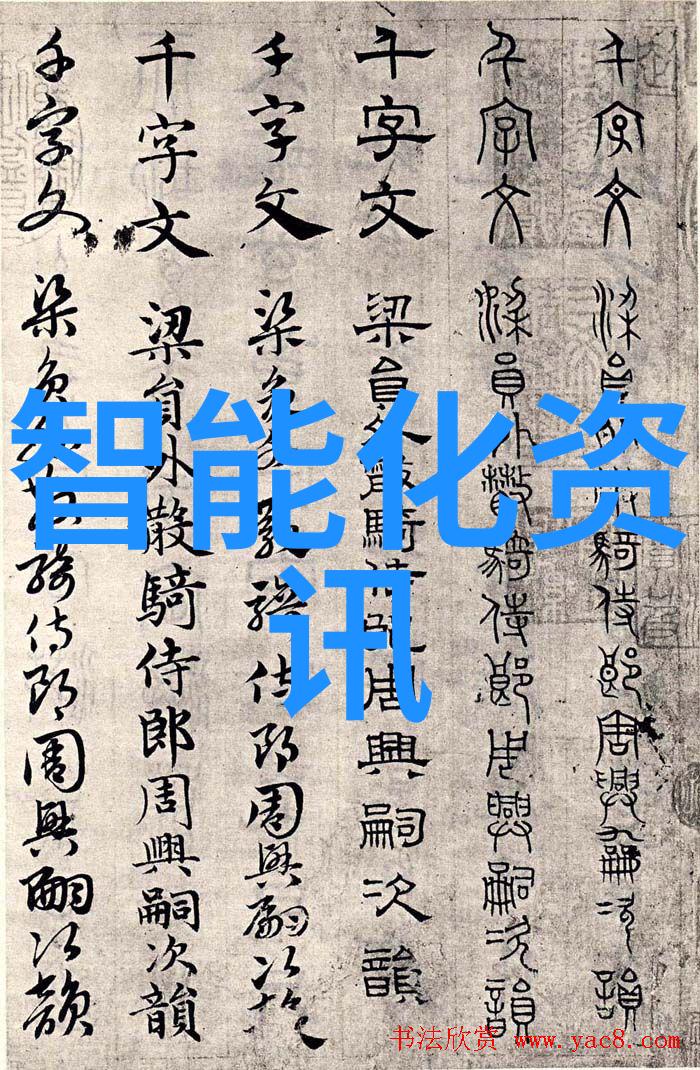 千字文 梁員外散騎侍郎周興嗣次韻
千字文 梁員外散騎侍郎周興嗣次韻
千字文 梁員外散騎侍郎周興嗣次韻
千字文 梁員外散騎侍郎周興嗣次韻
千字文 梁員外散騎侍郎周興嗣次韻
千字文 梁員外散騎侍郎周興嗣次韻
智能化资
讯
书法欣赏 www.yac8.com